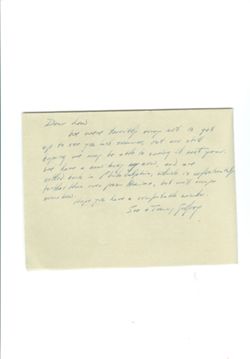 Dear Lou
We were terribly sorry not to get
up to see you this summer, but are still
hoping we may be able to swing it next year.
We have a new baby now, and are
settled back in Philadelphia, which is unfortunately
farther than ever from Maine, but we'll
Hope you have a comfortable winter.